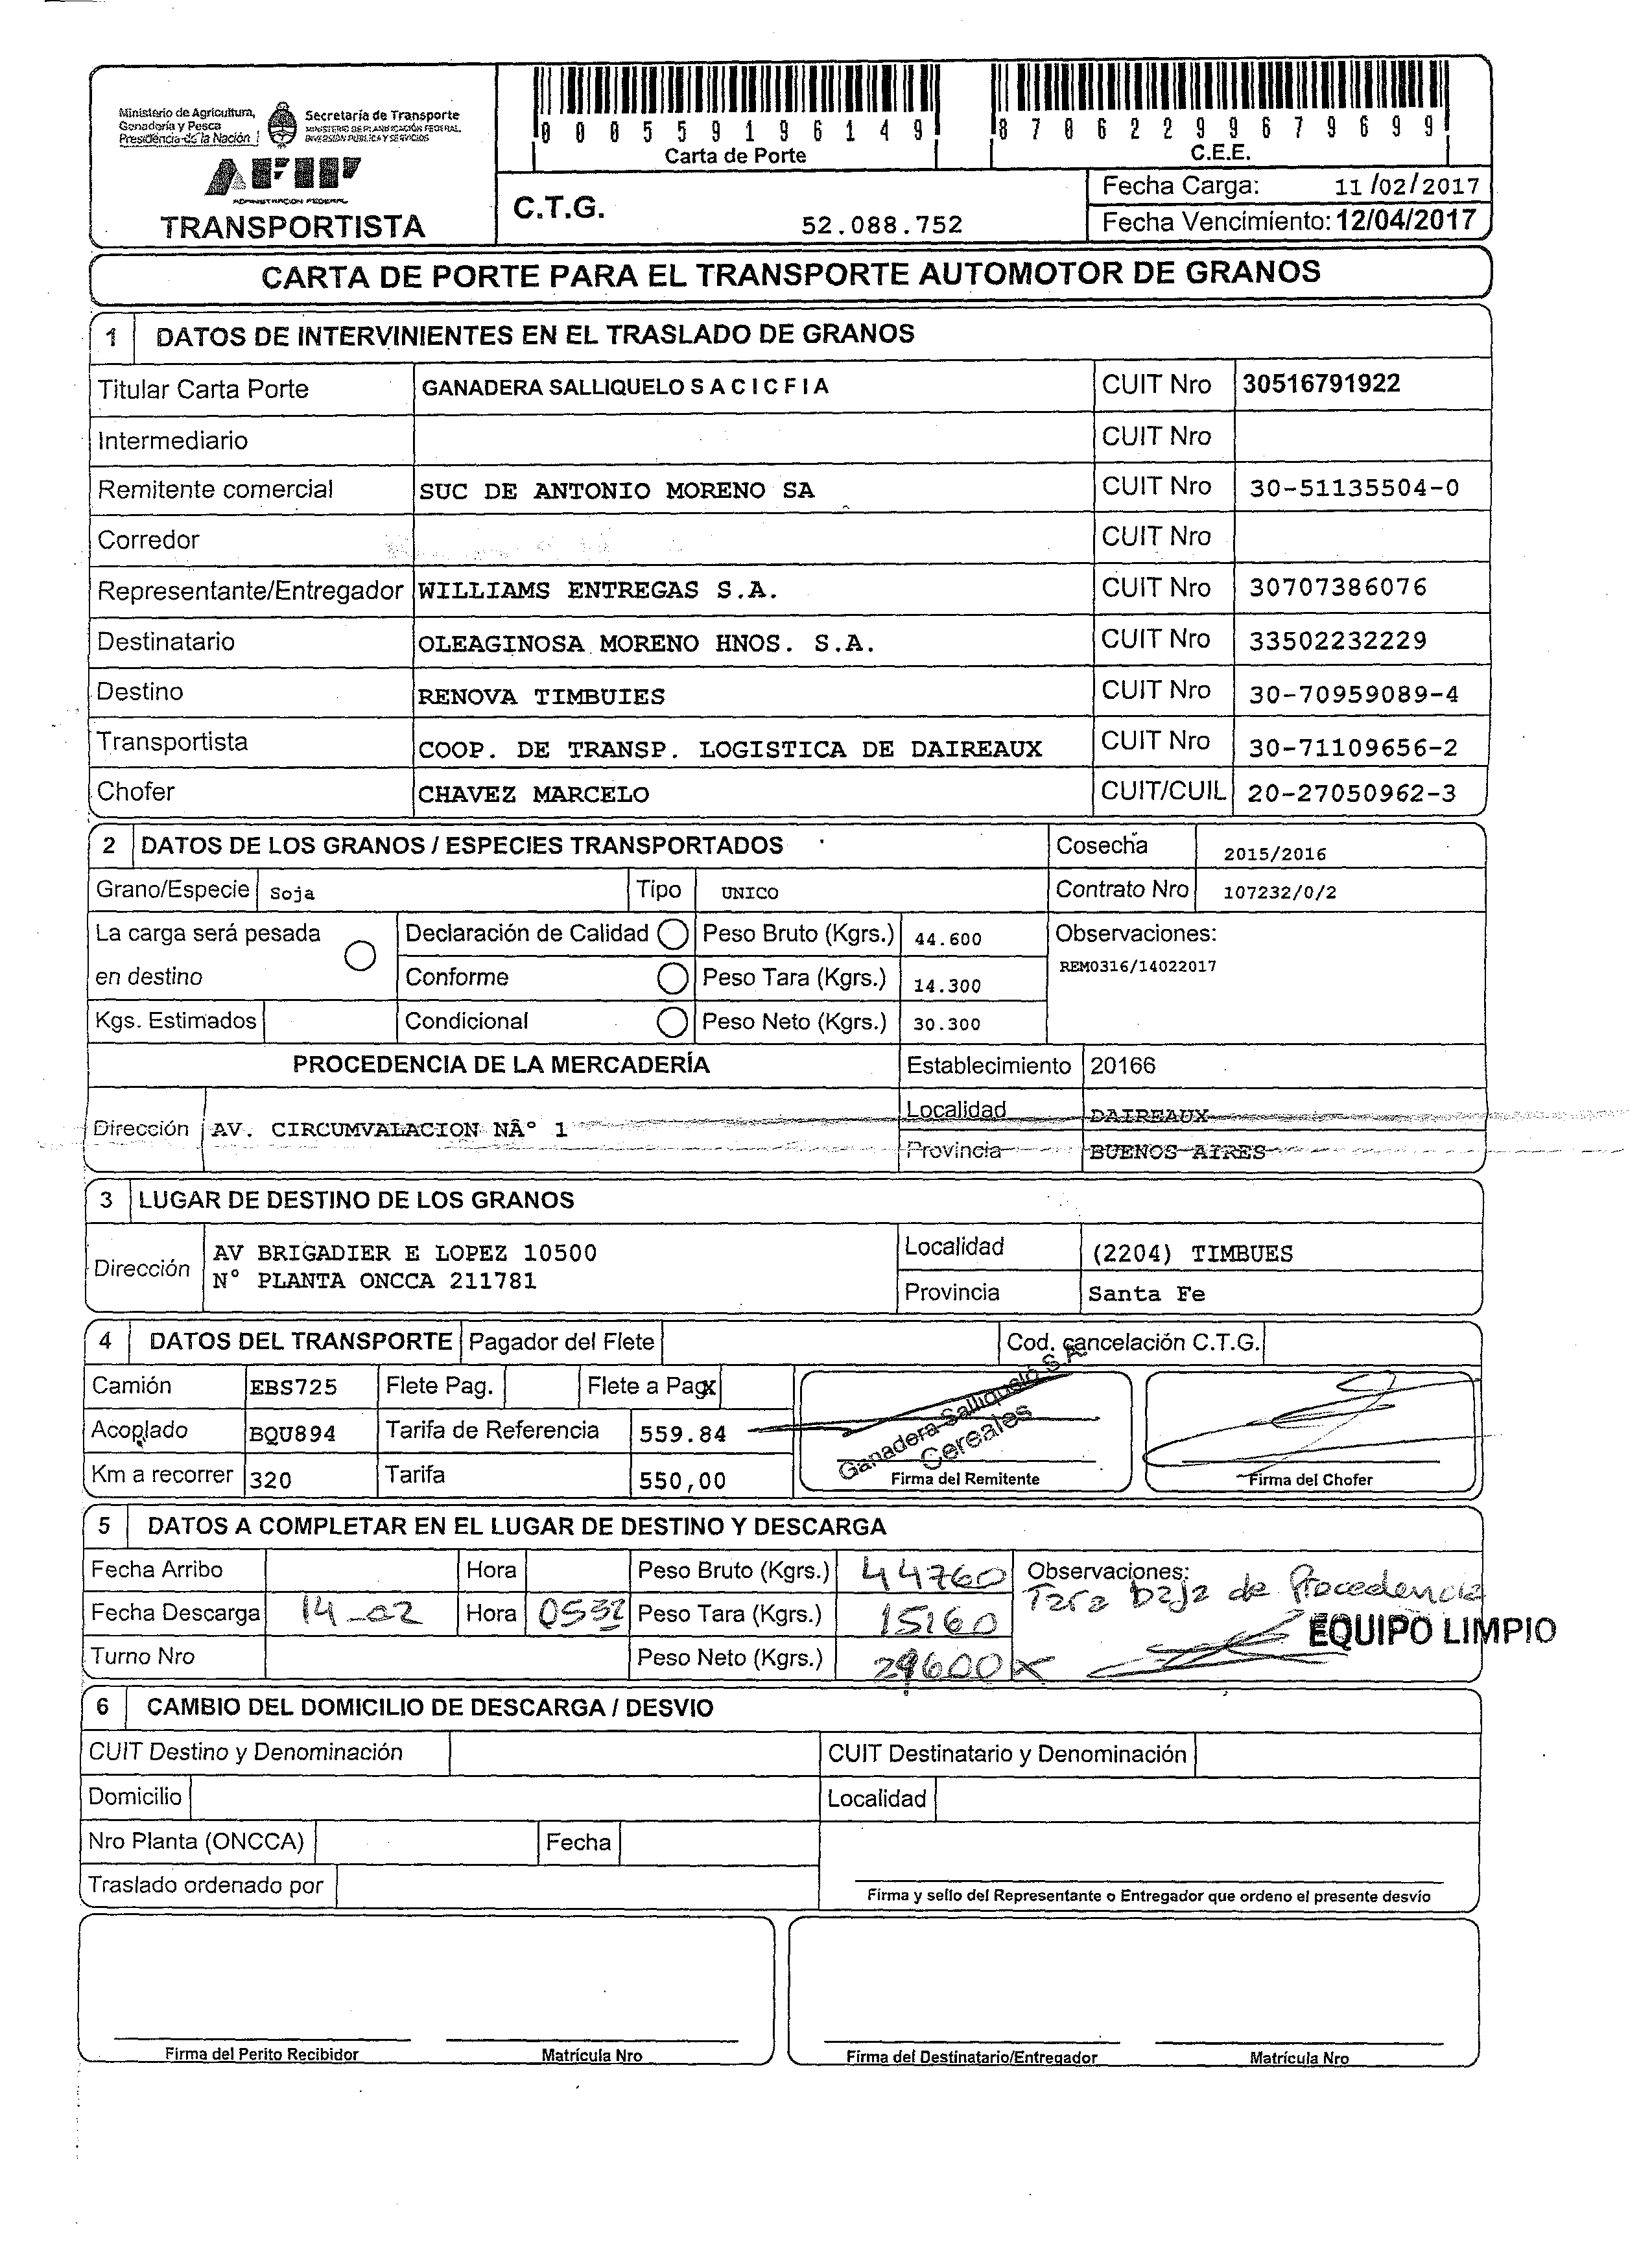 Ministerio de Agricultura,
Ganadería y Pesca
Presidencia de la Nación
Secretaría de Transporte
MINISTERIO DE PLANIFICACIÓN FEDERAL,
INVERSIÓN PÚBLICA Y SERVICIOS
AFIP
ADMINISTRACION FEDERAL
TRANSPORTISTA
000559196149
Carta de Porte
87062299679699
C.E.E.
C.T.G. 52.088.752
Fecha Carga: 11/02/2017
Fecha Vencimiento: 12/04/2017
CARTA DE PORTE PARA EL TRANSPORTE AUTOMOTOR DE GRANOS
1 DATOS DE INTERVINIENTES EN EL TRASLADO DE GRANOS
Titular Carta Porte GANADERA SALLIQUELO S A C I C F I A CUIT Nro 30516791922
Intermediario CUIT Nro
Remitente comercial SUC DE ANTONIO MORENO SA CUIT Nro 30-51135504-0
Corredor CUIT Nro
Representante/Entregador WILLIAMS ENTREGAS S.A. CUIT Nro 30707386076
Destinatario OLEAGINOSA MORENO HNOS. S.A. CUIT Nro 33502232229
Destino RENOVA TIMBUIES CUIT Nro 30-70959089-4
Transportista COOP. DE TRANSP. LOGISTICA DE DAIREAUX CUIT Nro 30-71109656-2
Chofer CHAVEZ MARCELO CUIT/CUIL 20-27050962-3
2 DATOS DE LOS GRANOS / ESPECIES TRANSPORTADOS Cosecha 2015/2016
Grano/Especie Soja Tipo UNICO Contrato Nro 107232/0/2
La carga será pesada Declaración de Calidad Peso Bruto (Kgrs.) 44.600 Observaciones:
en destino Conforme Peso Tara (Kgrs.) 14.300 REM0316/14022017
Kgs. Estimados Condicional Peso Neto (Kgrs.) 30.300
PROCEDENCIA DE LA MERCADERÍA Establecimiento 20166
Dirección AV. CIRCUMVALACION NÂº 1
Localidad DAIREAUX
Provincia BUENOS AIRES
3 LUGAR DE DESTINO DE LOS GRANOS
Dirección AV BRIGADIER E LOPEZ 10500
Nº PLANTA ONCCA 211781
Localidad (2204) TIMBUES
Provincia Santa Fe
4 DATOS DEL TRANSPORTE Pagador del Flete Cod. cancelación C.T.G.
Camión EBS725 Flete Pag. Flete a Pag X
Acoplado BQU894 Tarifa de Referencia 559.84
Km a recorrer 320 Tarifa 550,00
Ganadera Salliqueló S.A.
Cereales
Firma del Remitente Firma del Chofer
5 DATOS A COMPLETAR EN EL LUGAR DE DESTINO Y DESCARGA
Fecha Arribo Hora Peso Bruto (Kgrs.) 44760 Observaciones:
Tara baja de Procedencia
Fecha Descarga 14-02 Hora 0532 Peso Tara (Kgrs.) 15160
EQUIPO LIMPIO
Turno Nro Peso Neto (Kgrs.) 29600 x
6 CAMBIO DEL DOMICILIO DE DESCARGA / DESVIO
CUIT Destino y Denominación CUIT Destinatario y Denominación
Domicilio Localidad
Nro Planta (ONCCA) Fecha
Traslado ordenado por
Firma y sello del Representante o Entregador que ordeno el presente desvío
Firma del Perito Recibidor Matrícula Nro Firma del Destinatario/Entregador Matrícula Nro